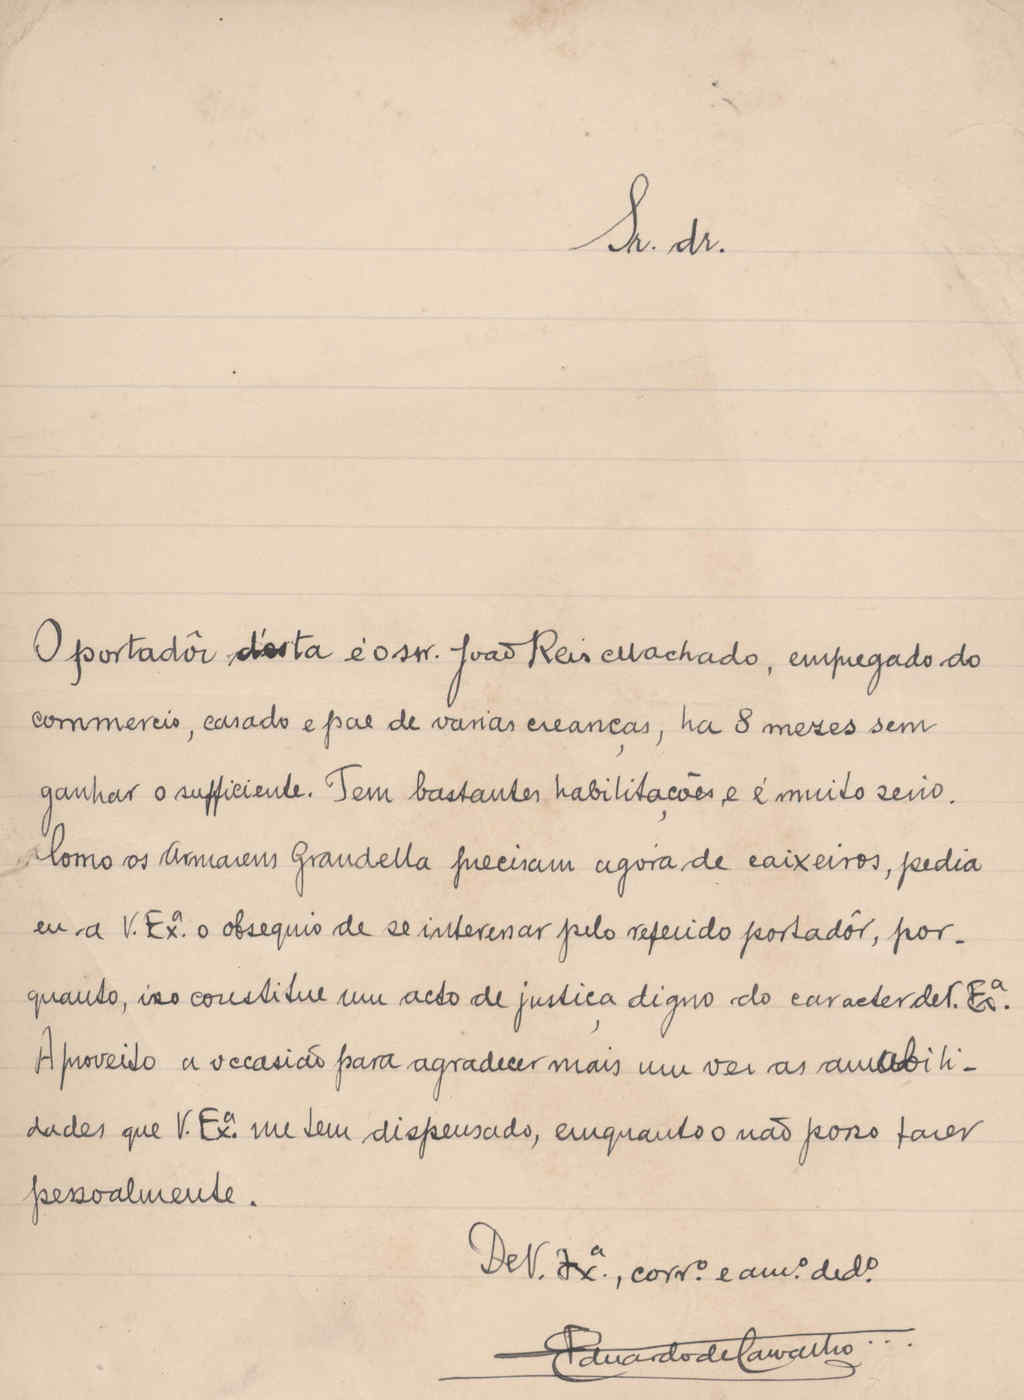 Sr. dr.
O portadôr d'esta é o snr. João Reis Machado, empregado do
commercio, casado e pae de varias creanças, ha 8 mezes sem
ganhar o sufficiente. Tem bastantes habilitações e é muito serio.
Como os Armazens Grandella precisam agora de caixeiros, pedia
eu a V. Exª. o obsequio de se interessar pelo referido portadôr, por-
quanto, isso constitue um acto de justiça digno do caracter de V. Exª.
Aproveito a occasião para agradecer mais um vez as amabili-
dades que V. Exª. me tem dispensado, emquanto o não posso fazer
pessoalmente.
De V. Exª., corr.º e am.º ded.º
Eduardo de Carvalho